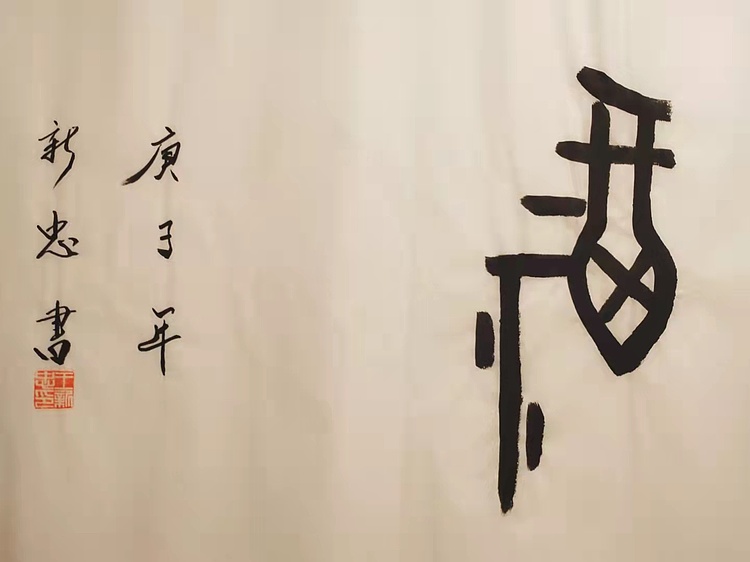 福
庚子年
新忠書